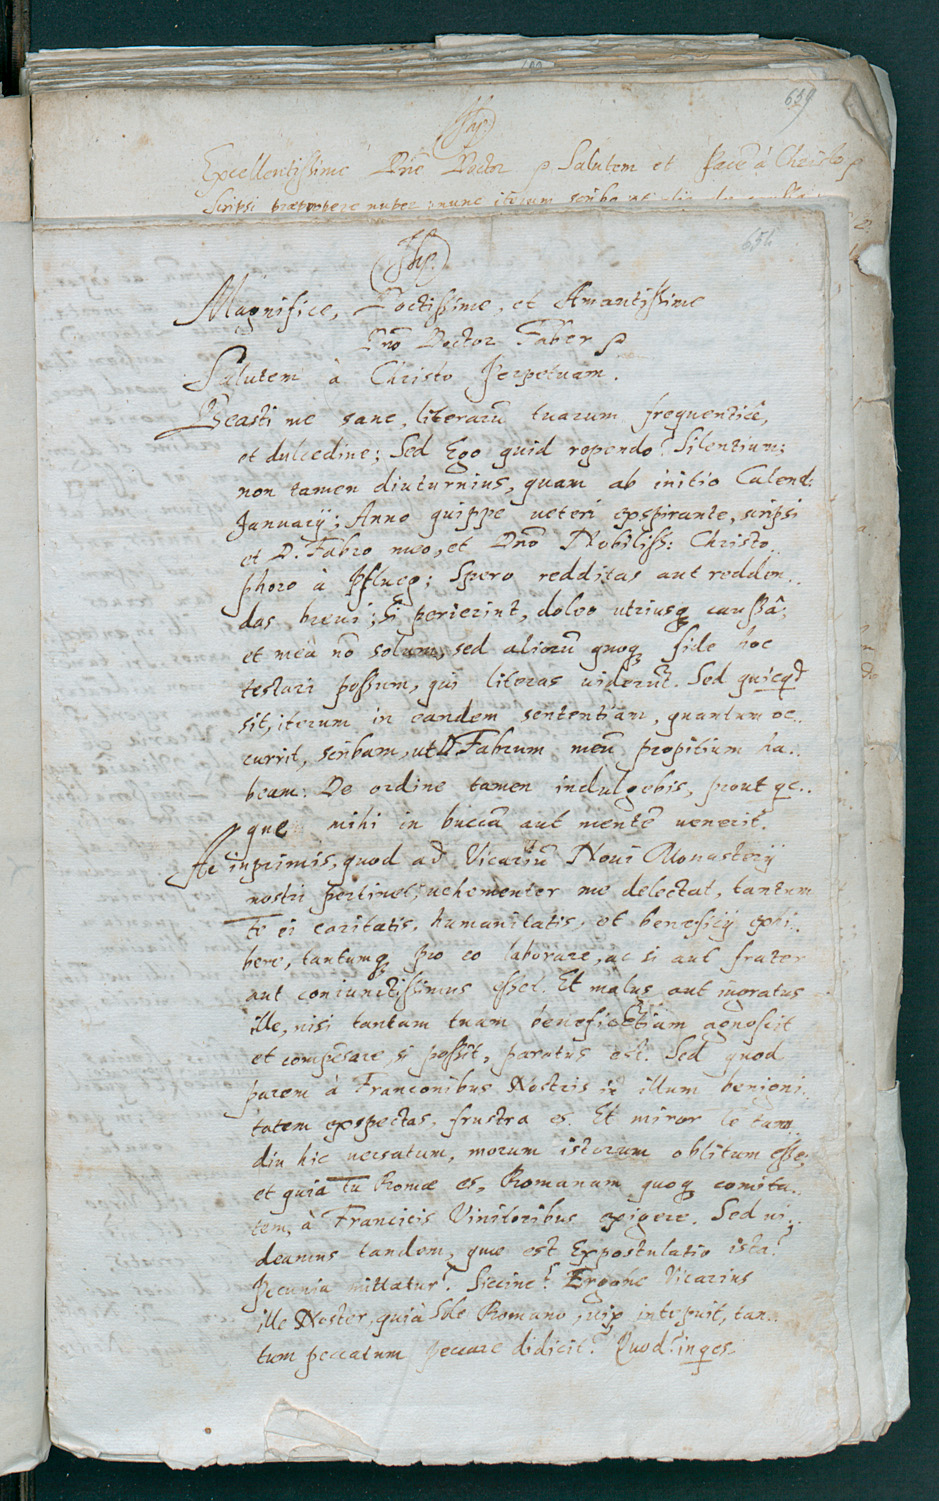 659
Excellentissime Dne Doctor Salutem et pacē à Christo
Scripsi nunc iterum scribo
654
Magnifice, Doctissime, et Amantissime
Dno Doctor Faber
Salutem à Christo perpetuam.
Beasti me sane, literarū tuarum frequentiâ,
et dulcedine; Sed Ego quid rependo? Silentium;
non tamen diuturnius, quam ab initio Calend:
Januarij; Anno quippe veteri exspirante, scripsi
et D. Fabro meo, et Dnō Nobiliss: Christo..
phoro à Pflueg; Spero redditas aut redden..
das brevi; Si perierint, doleo utriusq; caussâ;
et meâ nō solum, sed aliorū quoq; fide hoc
testari possum, qui literas viderūt. Sed quicqd
sit, iterum in eandem sententiam, quantum oc..
currit, scribam, ut D Fabrum meū propitium ha..
beam: De ordine tamen indulgebis, prout
que mihi in buccā aut mentē venerit.
Ac inprimis, quod ad Vicariū Novi Monasterij
nostri pertinet; vehementer me delectat, tantum
te ei caritatis, humanitatis, et beneficij exhi..
bere, tantumq; pro eo laborare, ac si aut frater
aut coniunctissimus esset. Et malus aut ingratus
ille, nisi tantam tuam beneficētiam agnoscit
et compēsare si possit, paratus est. Sed quod
parem à Franconibus Nostris in illum benigni..
tatem exspectas, frustra es. Et miror te tam..
diu hic versatum, morum istorum oblitum esse;
et quia tu Romæ es, Romanam quoq; comita..
tem, à Francicis Vinitoribus exigere. Sed vi..
deamus tandem, quæ est Expostulatio ista?
Pecunia mittatur? Siccine? Ergone Vicarius
ille Noster, quia Sole Romano vix intepuit, tan..
tum peccatum peccare didicit? Quod? inqes